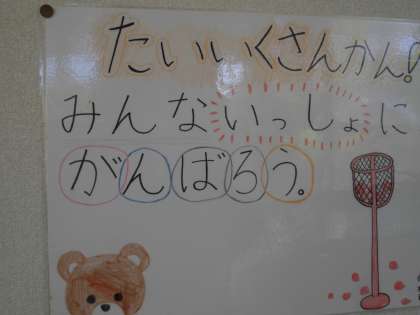 たいいくさんかん。
みんないっしょに
がんばろう。